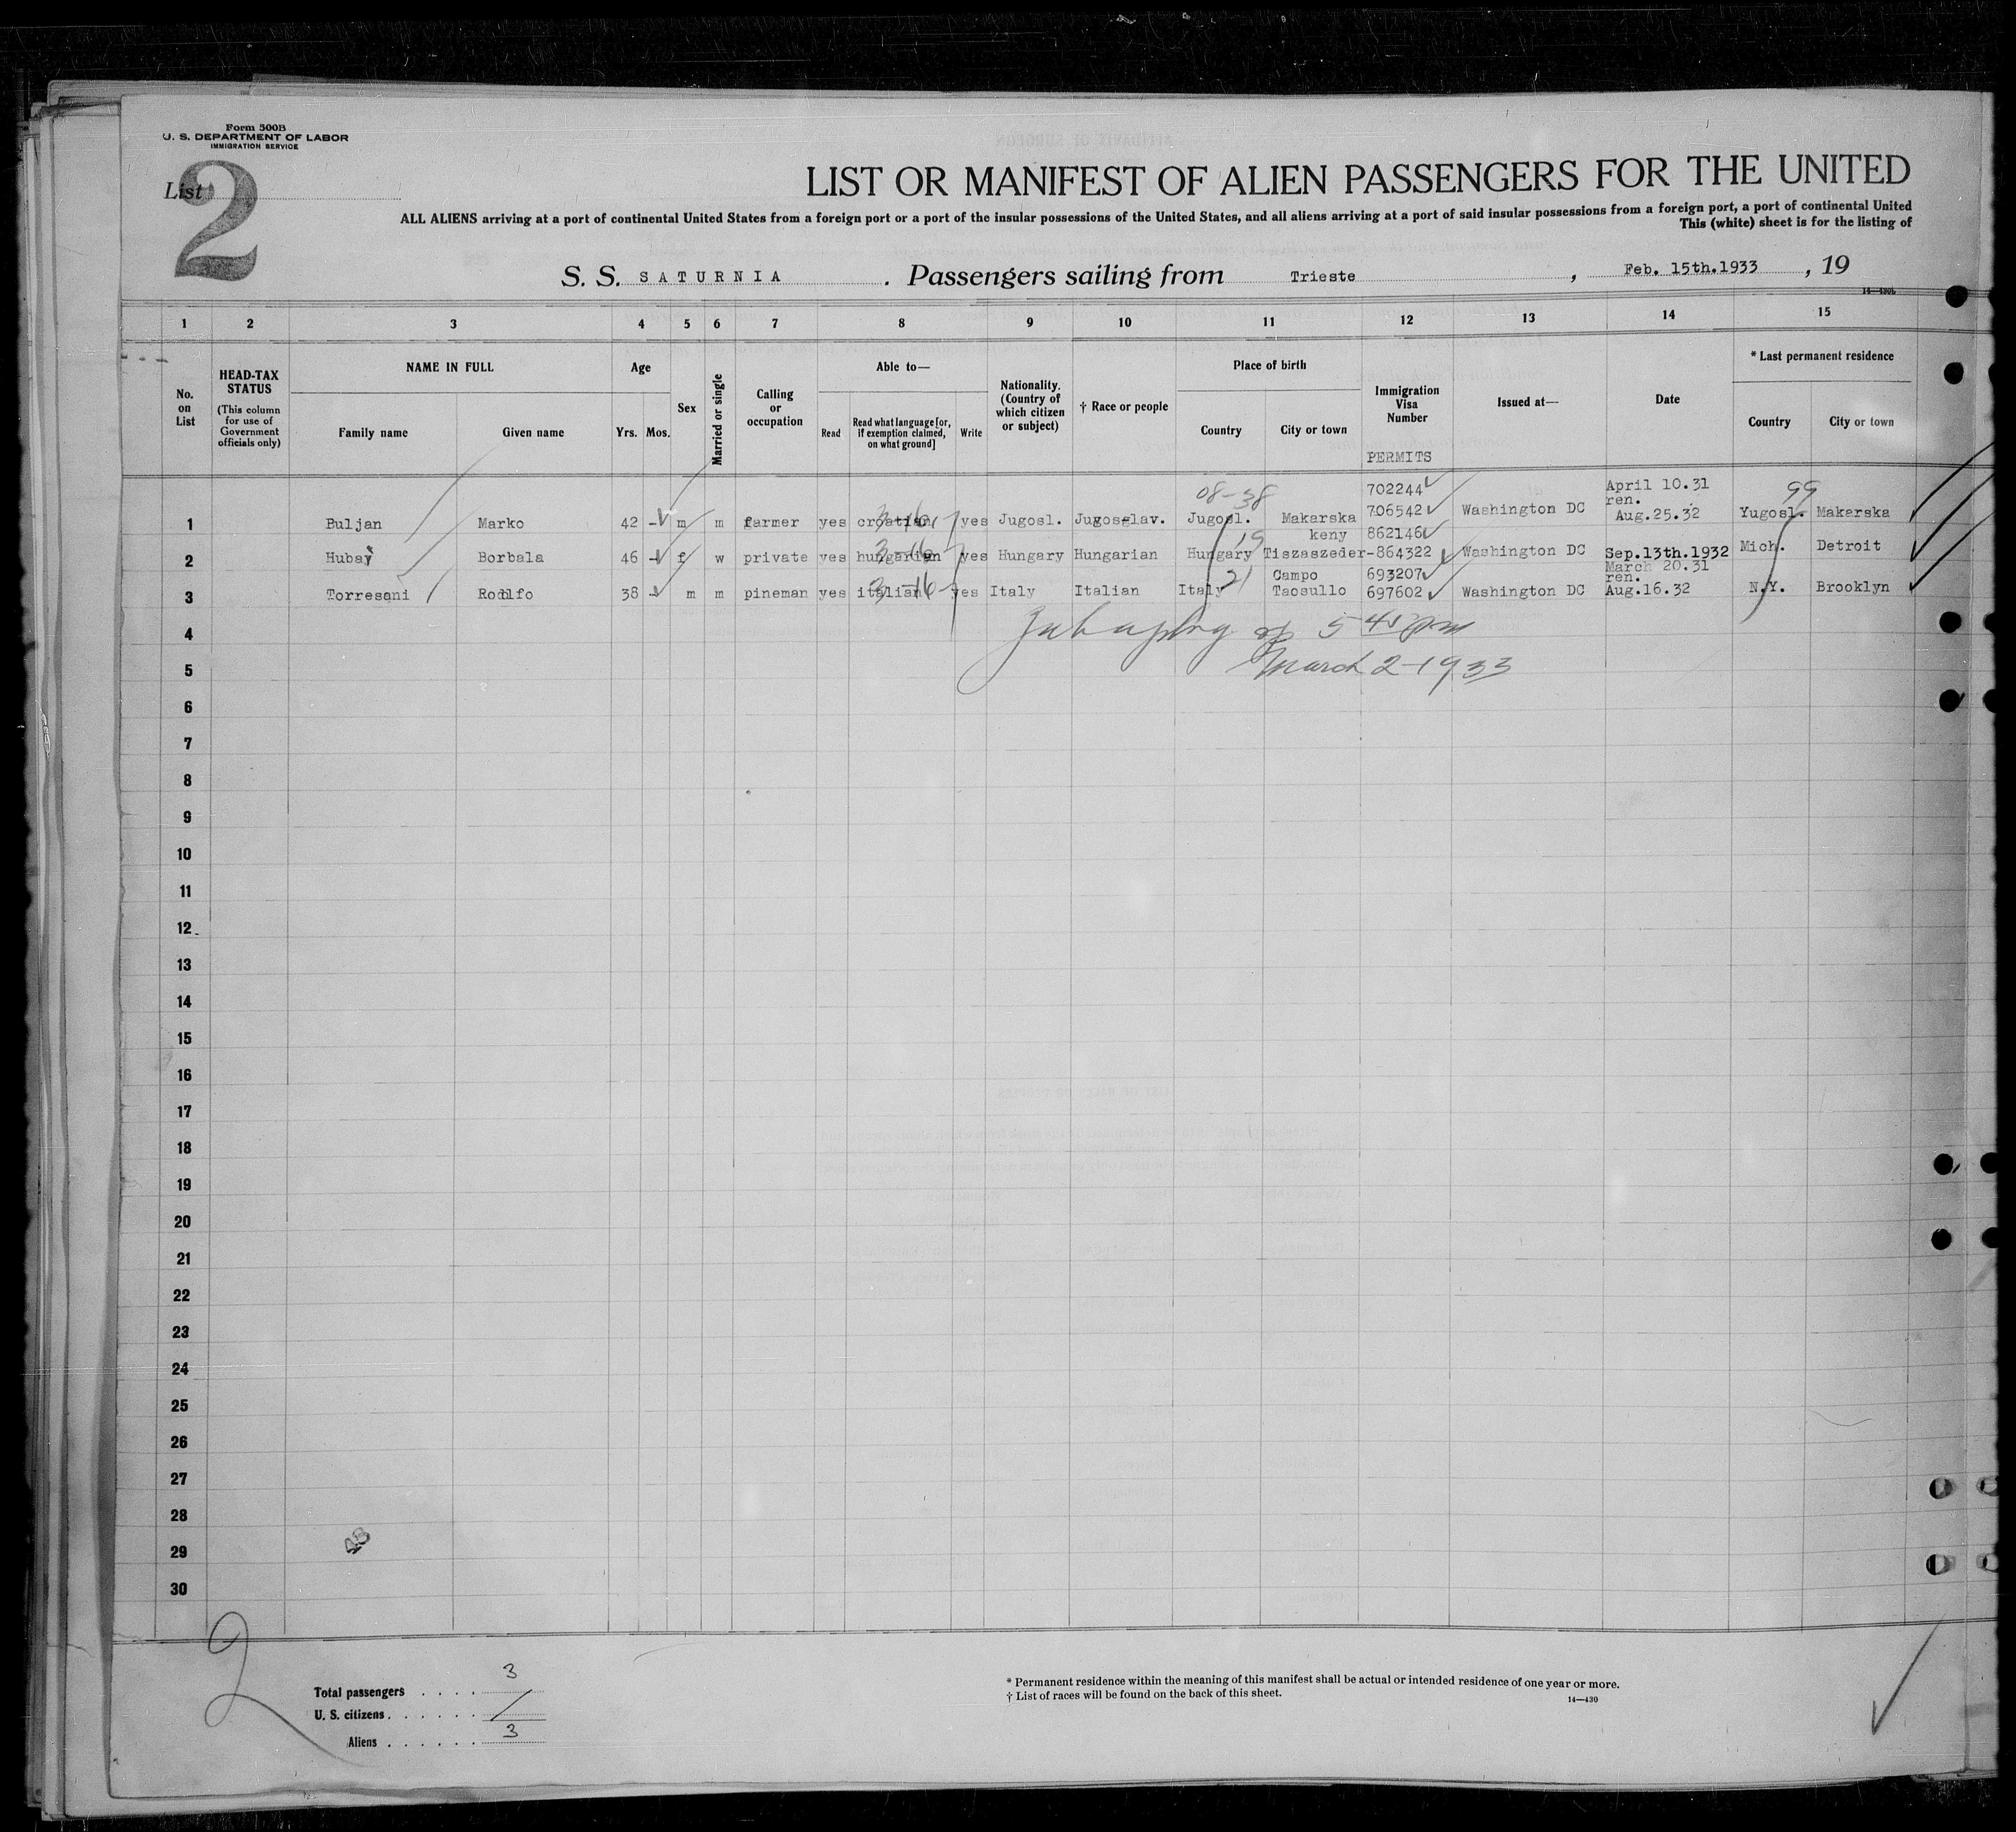 Form 500B
U. S. DEPARTMENT OF LABOR
IMMIGRATION SERVICE
List 2
LIST OR MANIFEST OF ALIEN PASSENGERS FOR THE UNITED
ALL ALIENS arriving at a port of continental United States from a foreign port or a port of the insular possessions of the United States, and all aliens arriving at a port of said insular possessions from a foreign port, a port of continental United
This (white) sheet is for the listing of
S. S. SATURNIA . Passengers sailing from Trieste , Feb. 15th.1933 , 19
1 2 3 4 5 6 7 8 9 10 11 12 13 14 15
No. on List
HEAD-TAX STATUS
(This column for use of Government officials only)
NAME IN FULL
Family name Given name
Age
Yrs. Mos.
Sex
Married or single
Calling or occupation
Able to—
Read
Read what language [or, if exemption claimed, on what ground]
Write
Nationality. (Country of which citizen or subject)
† Race or people
Place of birth
Country City or town
Immigration Visa Number
PERMITS
Issued at—
Date
* Last permanent residence
Country City or town
08-38 702244 April 10.31 99
ren.
1 Buljan Marko 42 - m m farmer yes croatian yes Jugosl. Jugoslav. Jugosl. Makarska 706542 Washington DC Aug.25.32 Yugosl. Makarska
keny 862146
2 Hubay Borbala 46 - f w private yes hungarian yes Hungary Hungarian Hungary Tiszaszeder-864322 Washington DC Sep.13th.1932 Mich. Detroit
Campo 693207 March 20.31
ren.
3 Torresani Rodlfo 38 - m m pineman yes italian yes Italy Italian Italy Taosullo 697602 Washington DC Aug.16.32 N.Y. Brooklyn
4 5 45 pm
5 March 2-1933
6
7
8
9
10
11
12
13
14
15
16
17
18
19
20
21
22
23
24
25
26
27
28
29
30
2
Total passengers . . . . 3
U. S. citizens . . . . . . /
Aliens . . . . . . 3
* Permanent residence within the meaning of this manifest shall be actual or intended residence of one year or more.
† List of races will be found on the back of this sheet.
14—430